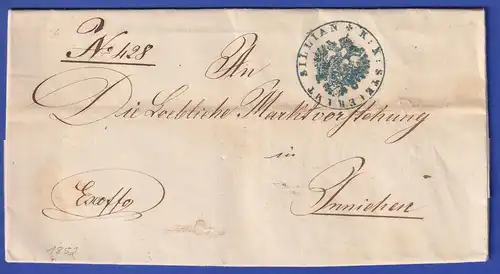 No 428
SILLIAN ✶ K: K: STEUERAMT
An
Die Loebliche Marktvorstehung
in
Exoffo
Innichen
1852